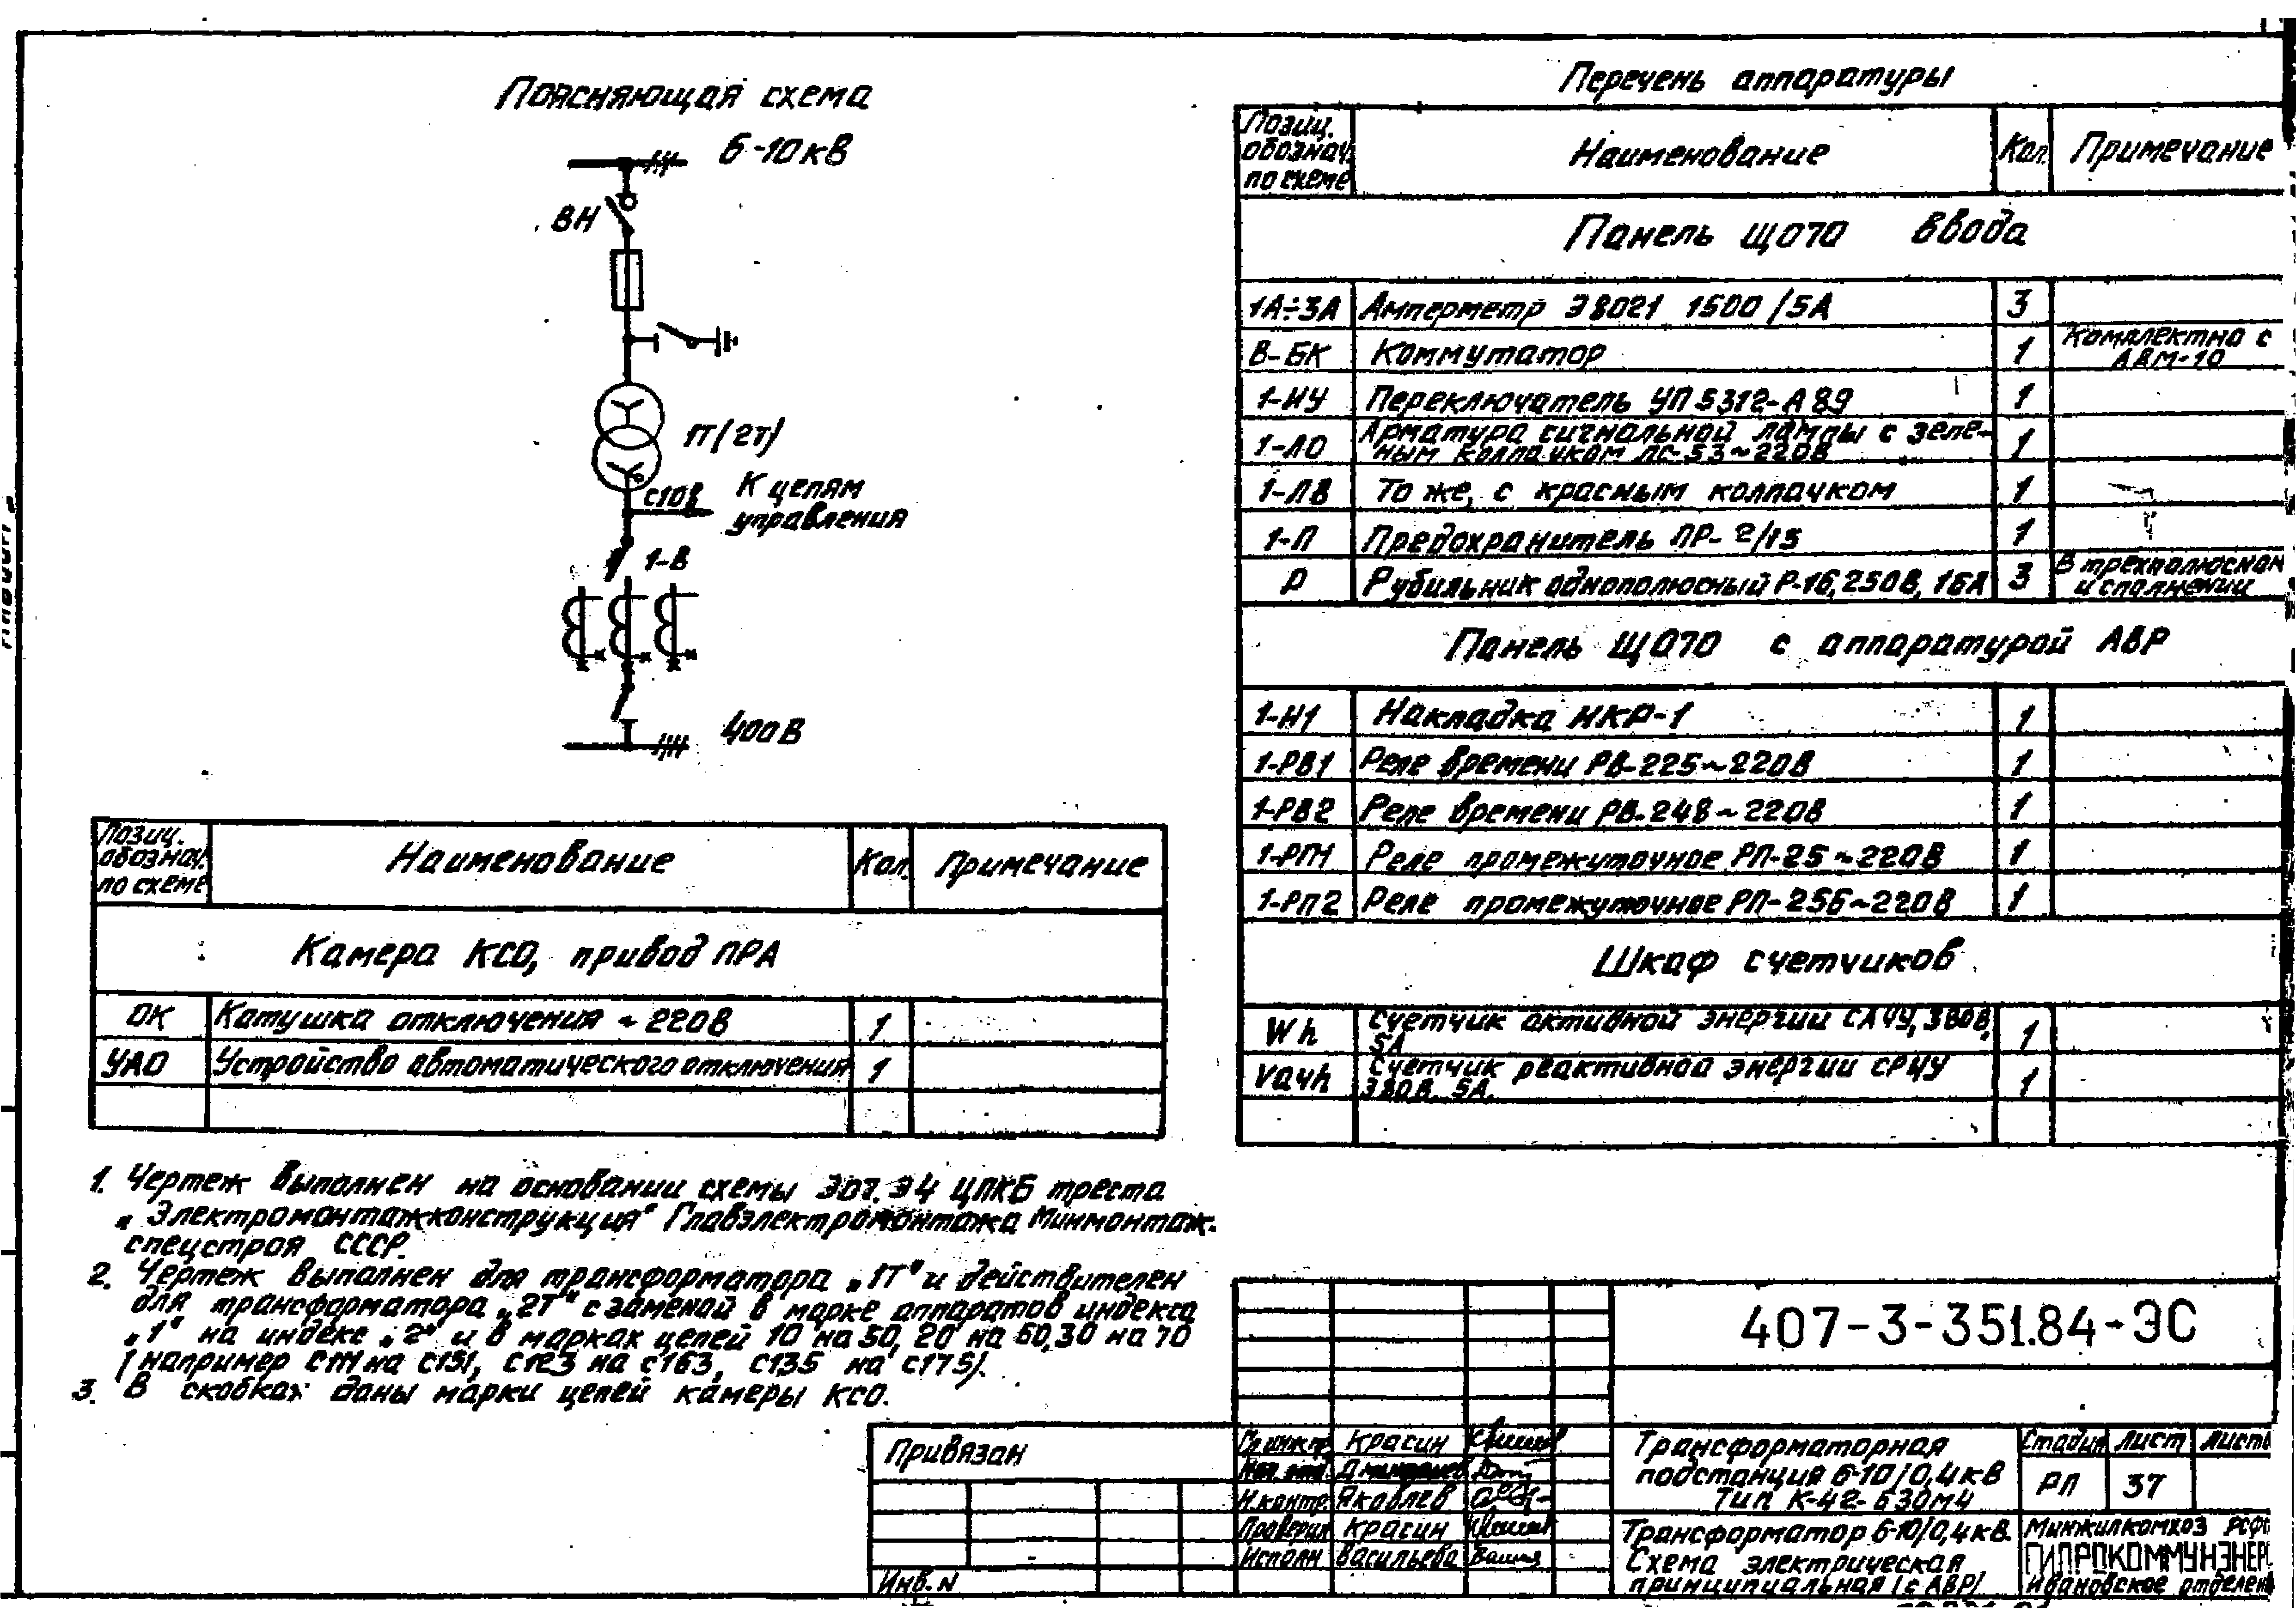 Поясняющая схема
6-10кВ
ВН
1Т(2Т)
с10в
К цепям
управления
1-В
400В
Позиц. обознач. по схеме Наименование Кол. Примечание
Камера КСО, привод ПРА
ОК Катушка отключения ~220В 1
УАО Устройство автоматического отключения 1
1. Чертеж выполнен на основании схемы ЦПКБ треста
„Электромонтажконструкция" Главэлектромонтажа Минмонтаж.
спецстроя СССР.
2. Чертеж выполнен для трансформатора „1Т" и действителен
для трансформатора „2Т" с заменой в марке аппаратов индекса
„1" на индекс „2" и в марках цепей 10 на 50, 20 на 60, 30 на 70
(например с111 на с151, с123 на с163, с135 на с175).
3. В скобках даны марки цепей камеры КСО.
Перечень аппаратуры
Позиц. обознач. по схеме Наименование Кол. Примечание
Панель ЩО70 ввода
1А÷3А Амперметр Э8021 1500/5А 3
В-БК Коммутатор 1 Комплектно с АВМ-10
1-ИУ Переключатель УП5312-А89 1
1-ЛО Арматура сигнальной лампы с зеле-
ным колпачком ЛС-53~220В 1
1-ЛВ То же, с красным колпачком 1
1-П Предохранитель ПР-2/15 1
Р Рубильник однополюсный Р-16, 250В, 16А 3 В трехполюсном исполнении
Панель ЩО70 с аппаратурой АВР
1-Н1 Накладка НКР-1 1
1-РВ1 Реле времени РВ-225~220В 1
1-РВ2 Реле времени РВ-248~220В 1
1-РП1 Реле промежуточное РП-25~220В 1
1-РП2 Реле промежуточное РП-256~220В 1
Шкаф счетчиков
Wh Счетчик активной энергии СА4У, 380В, 5А 1
Vaчh Счетчик реактивной энергии СР4У 380В. 5А. 1
407-3-351.84-ЭС
Привязан
Инв.N
Гл.инж.пр. Красин
Нач. отд.
Н.контр. Яковлев
Проверил Красин
Исполн Васильева
Трансформаторная
подстанция 6-10/0,4кВ
Тип К-42-630М4
Стадия Лист Листо
РП 37
Трансформатор 6-10/0,4кВ.
Схема электрическая
принципиальная (с АВР)
Минжилкомхоз РСФ
ГИПРОКОММУНЭНЕР
Ивановское отделен